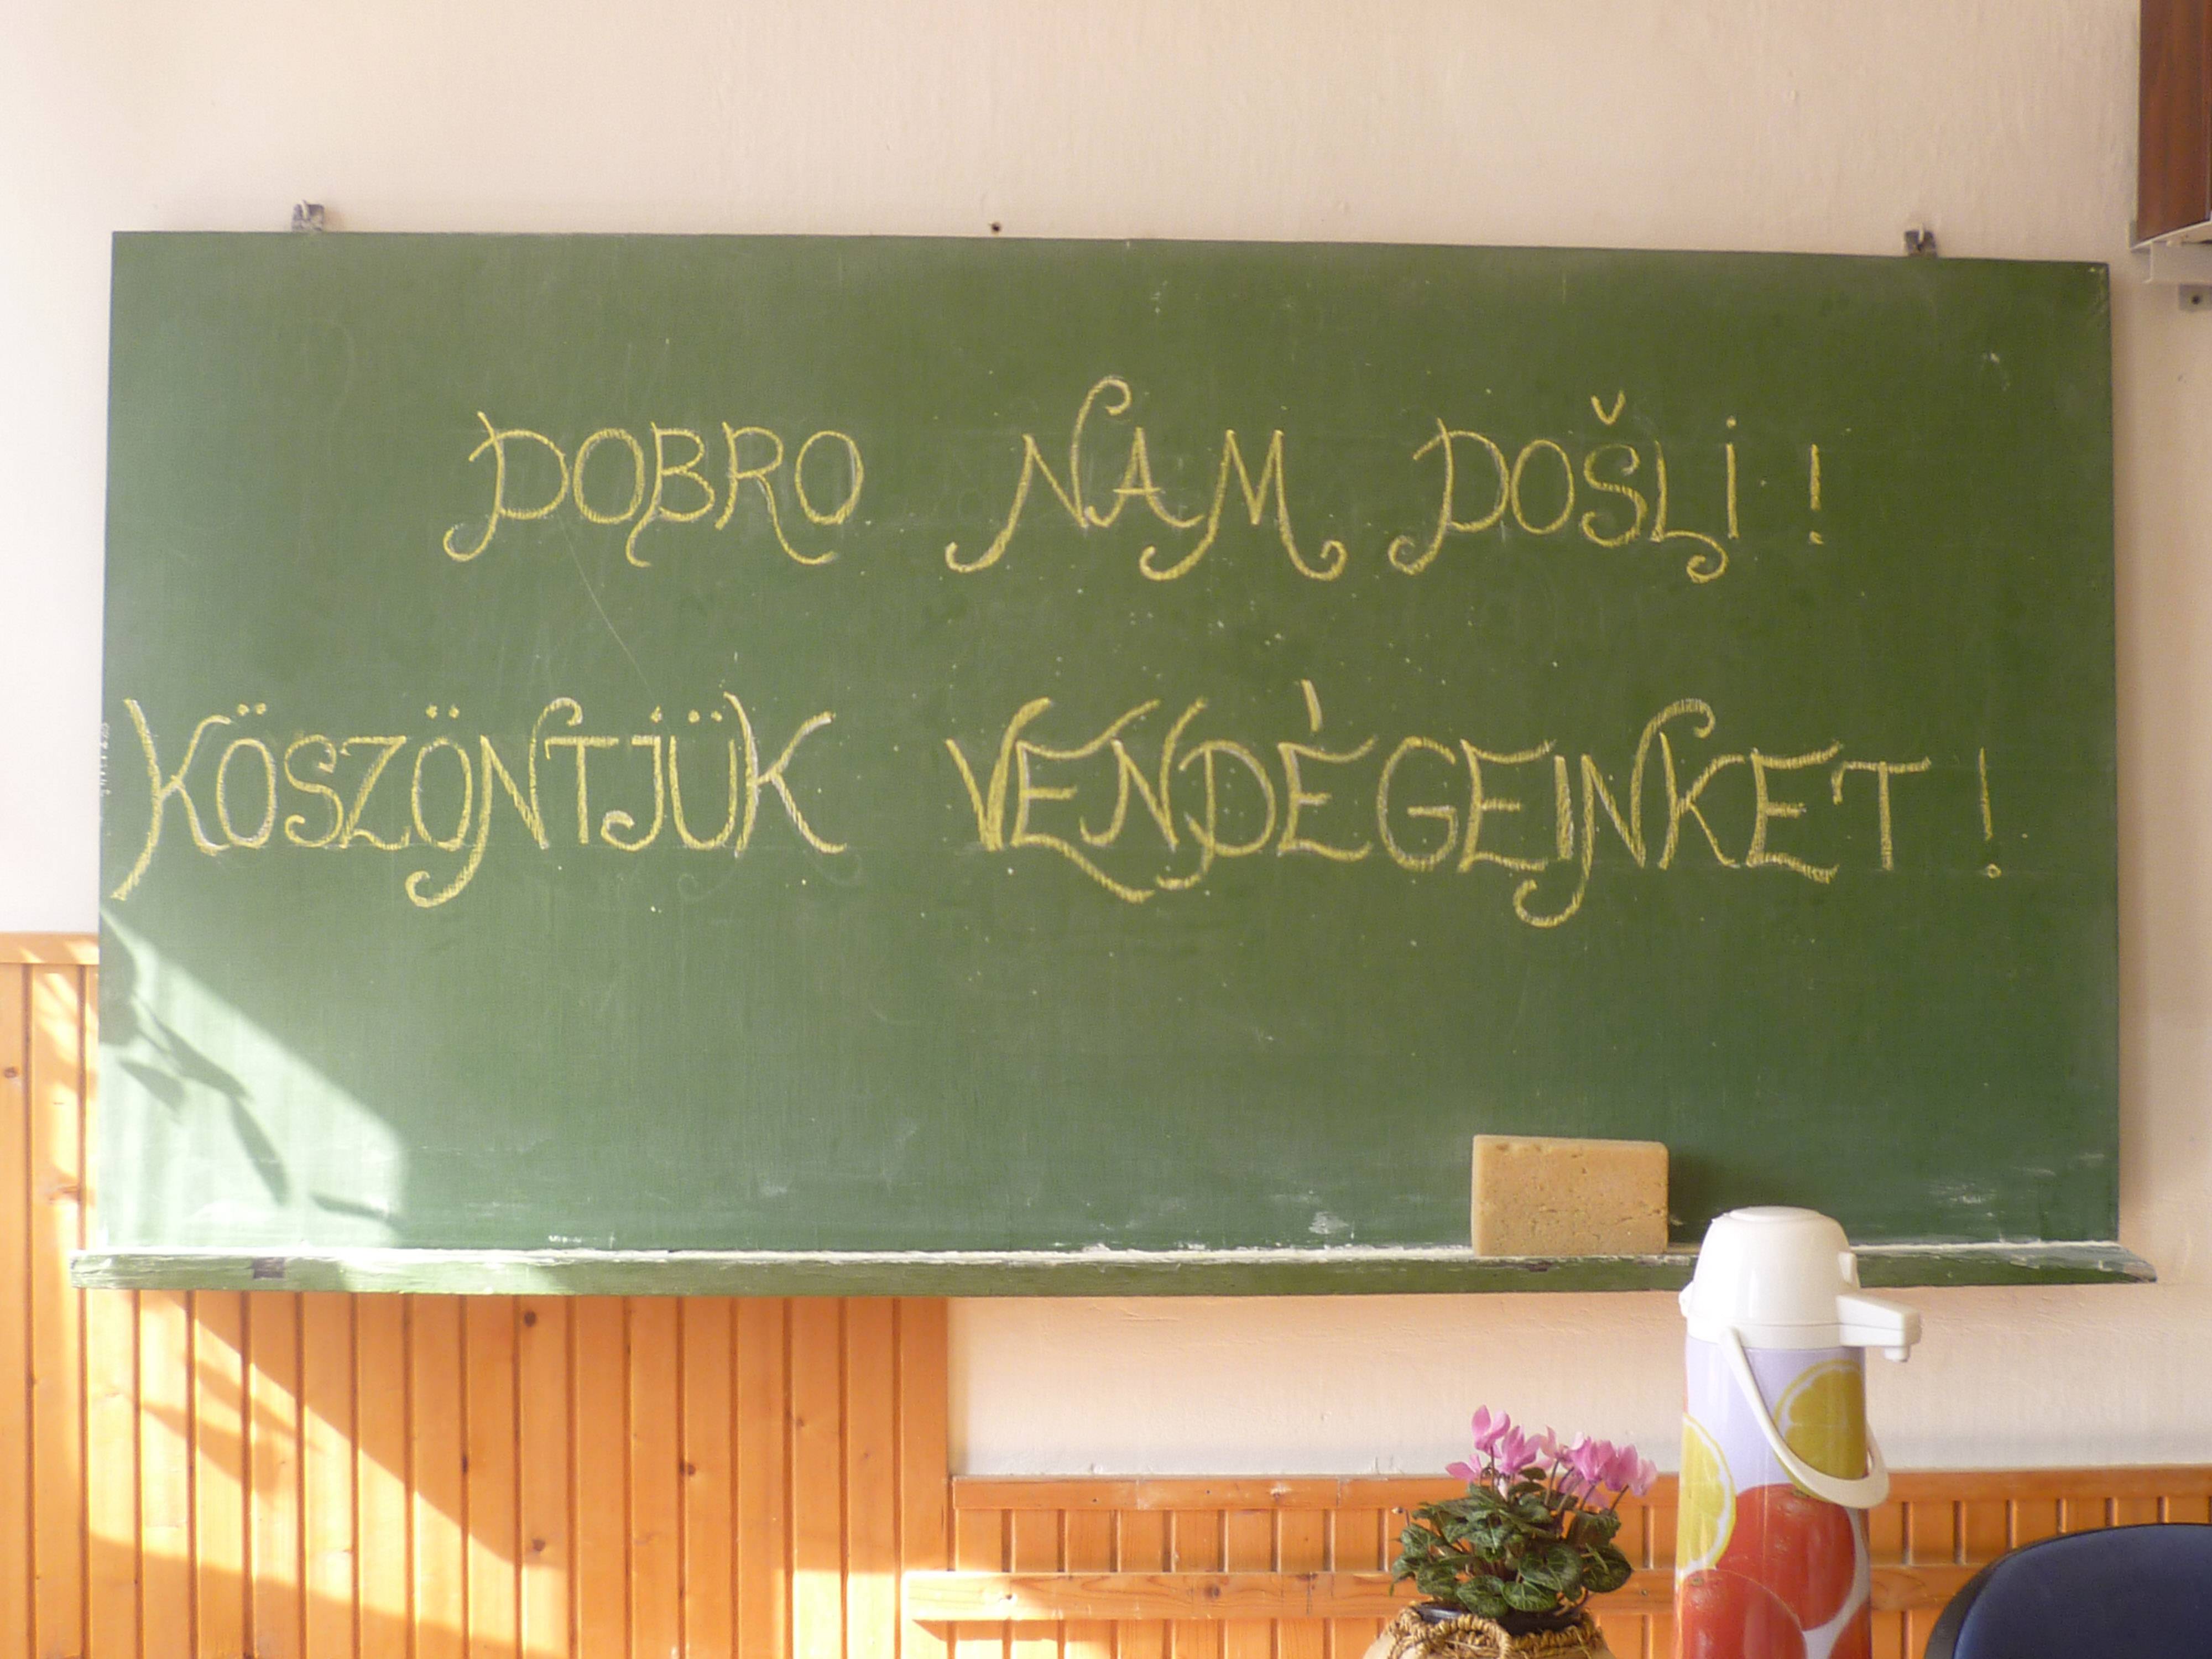 DOBRO NAM DOŠLI!
KÖSZÖNTJÜK VENDÉGEINKET!